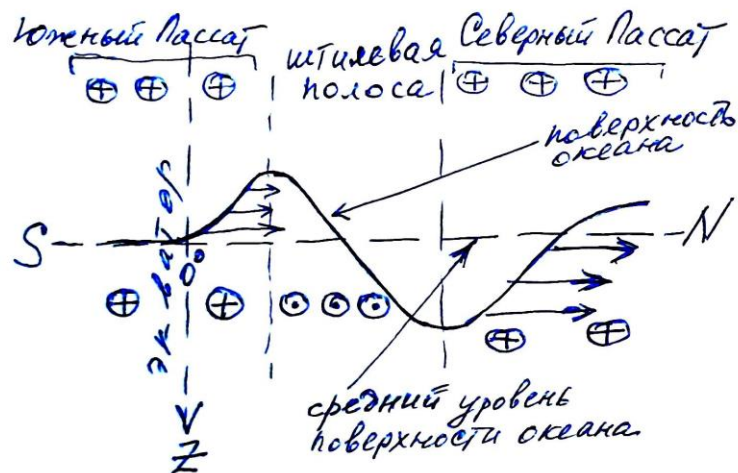 Южный Пассат
штилевая
полоса
Северный Пассат
поверхность
океана
S
N
экватор
0°
средний уровень
поверхности океана
Z